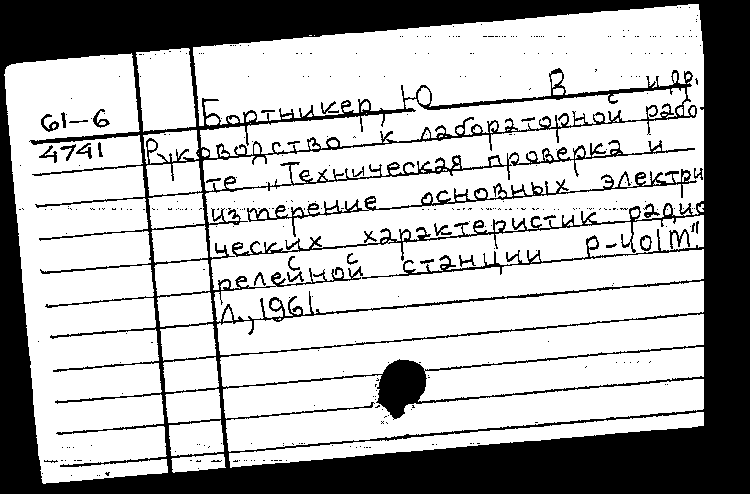 Бортникер, Ю В и др.
61-6
4741 Руководство к лабораторной рабо-
те „Техническая проверка и
измерение основных электри
ческих характеристик радио
релейной станции Р-401М"
Л., 1961.